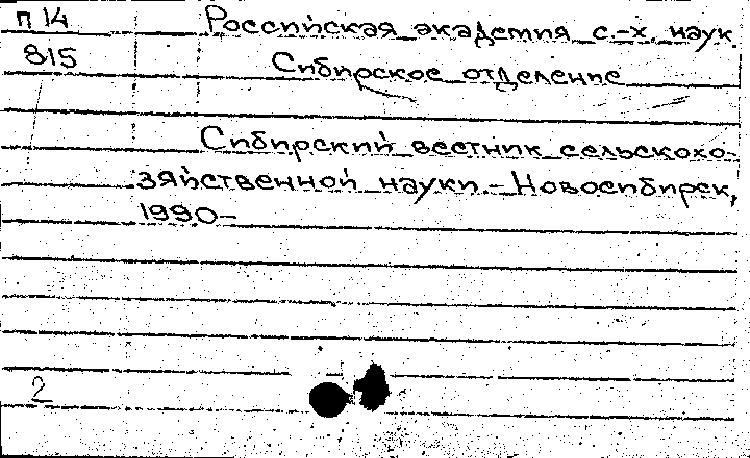 П 14 Российская академия с.-х. наук
815 Сибирское отделение
Сибирский вестник сельскохо-
зяйственной науки.- Новосибирск,
1990-
2